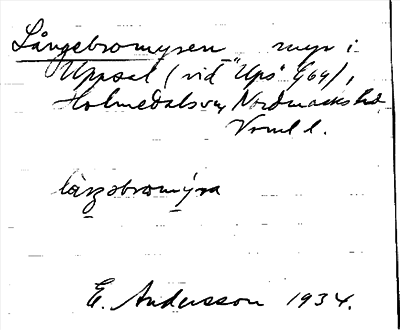 Långebromyren myr i
Uppsal (vid "Ups" G69),
Holmedals sn, Nordmarks hd.
Vrml l.
långəbromýra
E. Andersson 1934.